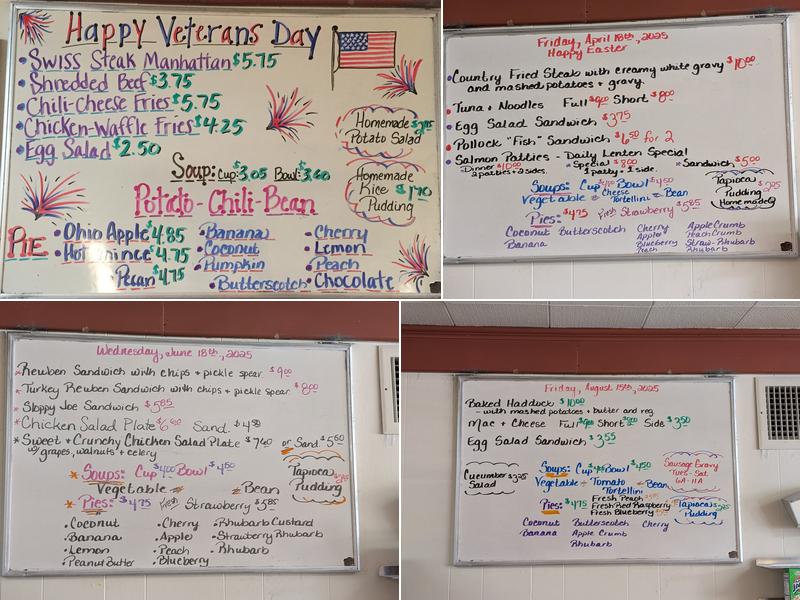 Happy Veterans Day
• Swiss Steak Manhattan $5.75
• Shredded Beef $3.75
• Chili-Cheese Fries $5.75
• Chicken-Waffle Fries $4.25
• Egg Salad $2.50
Homemade
Potato Salad
Soup: Cup: $3.05 Bowl: $3.60
Potato-Chili-Bean
Homemade
Rice $1.70
Pudding
PIE
• Ohio Apple $4.85
• Hot Mince $4.75
Pecan $4.75
• Banana
• Coconut
• Pumpkin
• Butterscotch
• Cherry
• Lemon
• Peach
• Chocolate
Friday, April 18th, 2025
Happy Easter
• Country Fried Steak with creamy white gravy $10.00
and mashed potatoes + gravy.
• Tuna + Noodles Full $9.00 Short $8.00
• Egg Salad Sandwich $3.75
• Pollock "Fish" Sandwich $6.50 for 2
• Salmon Patties - Daily Lenten Special
• Dinner $10.00
2 patties + 2 sides.
• Special $8.00
1 patty + 1 side.
• Sandwich $5.00
Soups: Cup Bowl $4.50
Vegetable Cheese Tortellini Bean
Tapioca
Pudding
Homemade
Pies: $4.75 Fresh Strawberry $5.85
Coconut Butterscotch
Banana
Cherry
Apple
Blueberry
Peach
Apple Crumb
Peach Crumb
Straw-Rhubarb
Rhubarb
Wednesday, June 18th, 2025
* Reuben Sandwich with chips + pickle spear $9.00
* Turkey Reuben Sandwich with chips + pickle spear $8.00
* Sloppy Joe Sandwich $5.85
* Chicken Salad Plate Sand.
* Sweet + Crunchy Chicken Salad Plate or Sand.
w/ grapes, walnuts + celery
* Soups: Cup $4.00 Bowl $4.50
Vegetable Bean
Tapioca
Pudding
* Pies: $4.75 Fresh Strawberry $5.85
• Coconut
• Banana
• Lemon
• Peanut Butter
• Cherry
• Apple
• Peach
• Blueberry
• Rhubarb Custard
• Strawberry Rhubarb
• Rhubarb
Friday, August 15th, 2025
Baked Haddock $10.00
- with mashed potatoes + butter and veg
Mac + Cheese Full $9.00 Short $8.00 Side $3.50
Egg Salad Sandwich $3.55
Cucumber $3.25
Salad
Soups: Cup Bowl $4.50
Vegetable Tomato Tortellini Bean
Sausage Gravy
Tues-Sat
6A-11A
Pies: $4.75
Fresh Peach
Fresh Red Raspberry
Fresh Blueberry
Tapioca
Pudding
Coconut Butterscotch Cherry
Banana Apple Crumb
Rhubarb